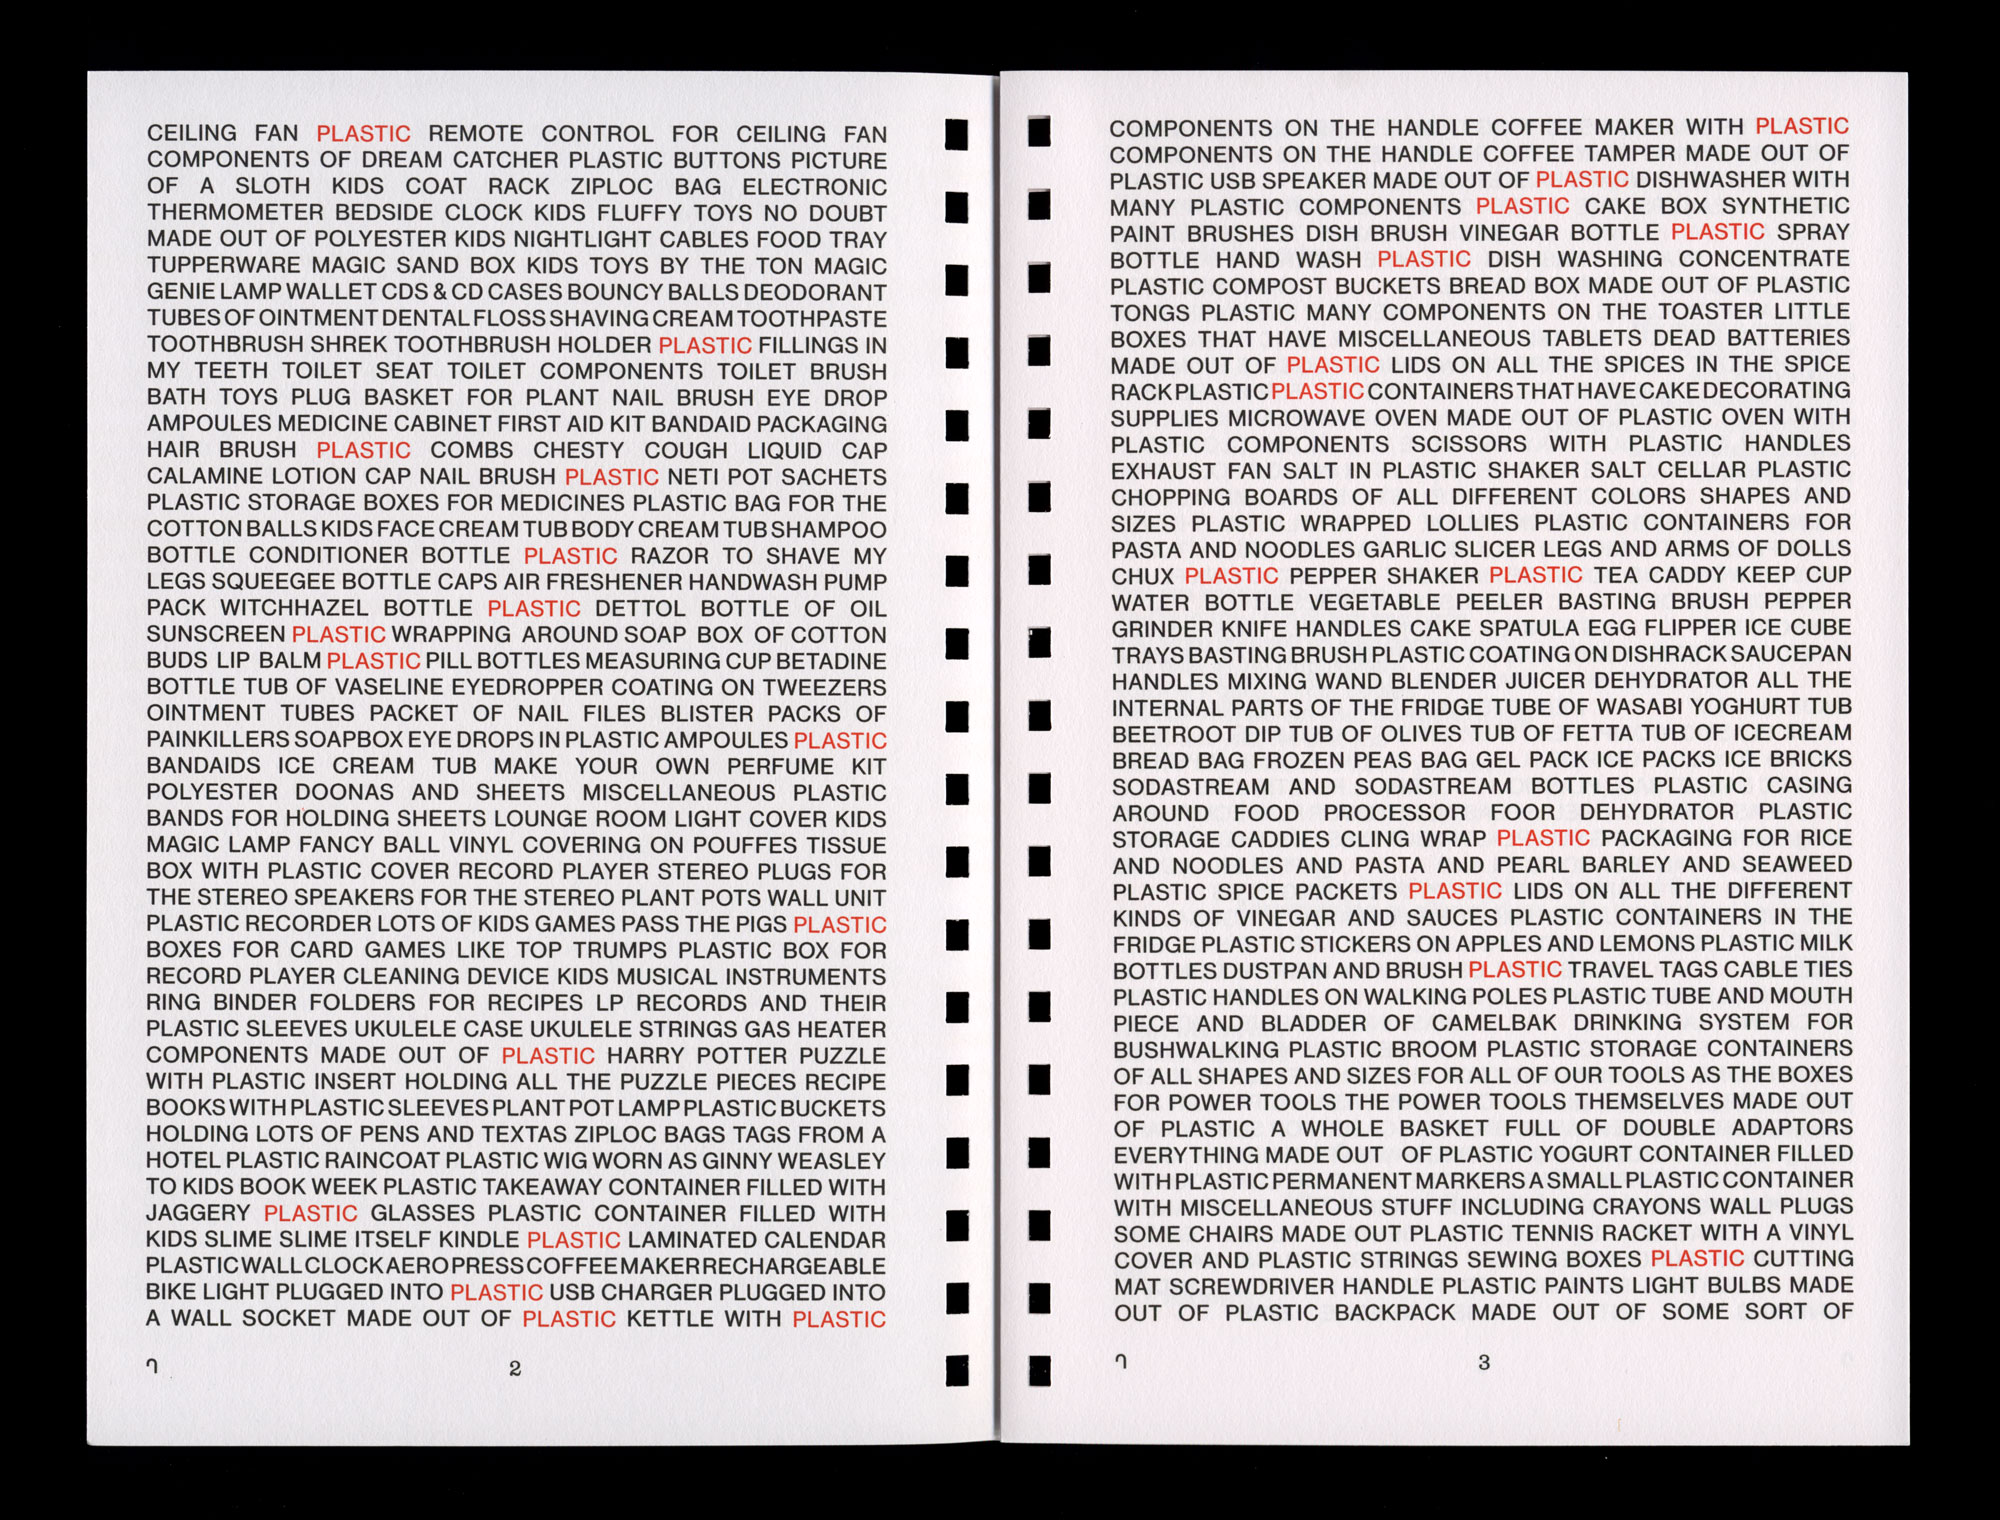 CEILING FAN PLASTIC REMOTE CONTROL FOR CEILING FAN
COMPONENTS OF DREAM CATCHER PLASTIC BUTTONS PICTURE
OF A SLOTH KIDS COAT RACK ZIPLOC BAG ELECTRONIC
THERMOMETER BEDSIDE CLOCK KIDS FLUFFY TOYS NO DOUBT
MADE OUT OF POLYESTER KIDS NIGHTLIGHT CABLES FOOD TRAY
TUPPERWARE MAGIC SAND BOX KIDS TOYS BY THE TON MAGIC
GENIE LAMP WALLET CDS & CD CASES BOUNCY BALLS DEODORANT
TUBES OF OINTMENT DENTAL FLOSS SHAVING CREAM TOOTHPASTE
TOOTHBRUSH SHREK TOOTHBRUSH HOLDER PLASTIC FILLINGS IN
MY TEETH TOILET SEAT TOILET COMPONENTS TOILET BRUSH
BATH TOYS PLUG BASKET FOR PLANT NAIL BRUSH EYE DROP
AMPOULES MEDICINE CABINET FIRST AID KIT BANDAID PACKAGING
HAIR BRUSH PLASTIC COMBS CHESTY COUGH LIQUID CAP
CALAMINE LOTION CAP NAIL BRUSH PLASTIC NETI POT SACHETS
PLASTIC STORAGE BOXES FOR MEDICINES PLASTIC BAG FOR THE
COTTON BALLS KIDS FACE CREAM TUB BODY CREAM TUB SHAMPOO
BOTTLE CONDITIONER BOTTLE PLASTIC RAZOR TO SHAVE MY
LEGS SQUEEGEE BOTTLE CAPS AIR FRESHENER HANDWASH PUMP
PACK WITCHHAZEL BOTTLE PLASTIC DETTOL BOTTLE OF OIL
SUNSCREEN PLASTIC WRAPPING AROUND SOAP BOX OF COTTON
BUDS LIP BALM PLASTIC PILL BOTTLES MEASURING CUP BETADINE
BOTTLE TUB OF VASELINE EYEDROPPER COATING ON TWEEZERS
OINTMENT TUBES PACKET OF NAIL FILES BLISTER PACKS OF
PAINKILLERS SOAPBOX EYE DROPS IN PLASTIC AMPOULES PLASTIC
BANDAIDS ICE CREAM TUB MAKE YOUR OWN PERFUME KIT
POLYESTER DOONAS AND SHEETS MISCELLANEOUS PLASTIC
BANDS FOR HOLDING SHEETS LOUNGE ROOM LIGHT COVER KIDS
MAGIC LAMP FANCY BALL VINYL COVERING ON POUFFES TISSUE
BOX WITH PLASTIC COVER RECORD PLAYER STEREO PLUGS FOR
THE STEREO SPEAKERS FOR THE STEREO PLANT POTS WALL UNIT
PLASTIC RECORDER LOTS OF KIDS GAMES PASS THE PIGS PLASTIC
BOXES FOR CARD GAMES LIKE TOP TRUMPS PLASTIC BOX FOR
RECORD PLAYER CLEANING DEVICE KIDS MUSICAL INSTRUMENTS
RING BINDER FOLDERS FOR RECIPES LP RECORDS AND THEIR
PLASTIC SLEEVES UKULELE CASE UKULELE STRINGS GAS HEATER
COMPONENTS MADE OUT OF PLASTIC HARRY POTTER PUZZLE
WITH PLASTIC INSERT HOLDING ALL THE PUZZLE PIECES RECIPE
BOOKS WITH PLASTIC SLEEVES PLANT POT LAMP PLASTIC BUCKETS
HOLDING LOTS OF PENS AND TEXTAS ZIPLOC BAGS TAGS FROM A
HOTEL PLASTIC RAINCOAT PLASTIC WIG WORN AS GINNY WEASLEY
TO KIDS BOOK WEEK PLASTIC TAKEAWAY CONTAINER FILLED WITH
JAGGERY PLASTIC GLASSES PLASTIC CONTAINER FILLED WITH
KIDS SLIME SLIME ITSELF KINDLE PLASTIC LAMINATED CALENDAR
PLASTIC WALL CLOCK AEROPRESS COFFEE MAKER RECHARGEABLE
BIKE LIGHT PLUGGED INTO PLASTIC USB CHARGER PLUGGED INTO
A WALL SOCKET MADE OUT OF PLASTIC KETTLE WITH PLASTIC
2
COMPONENTS ON THE HANDLE COFFEE MAKER WITH PLASTIC
COMPONENTS ON THE HANDLE COFFEE TAMPER MADE OUT OF
PLASTIC USB SPEAKER MADE OUT OF PLASTIC DISHWASHER WITH
MANY PLASTIC COMPONENTS PLASTIC CAKE BOX SYNTHETIC
PAINT BRUSHES DISH BRUSH VINEGAR BOTTLE PLASTIC SPRAY
BOTTLE HAND WASH PLASTIC DISH WASHING CONCENTRATE
PLASTIC COMPOST BUCKETS BREAD BOX MADE OUT OF PLASTIC
TONGS PLASTIC MANY COMPONENTS ON THE TOASTER LITTLE
BOXES THAT HAVE MISCELLANEOUS TABLETS DEAD BATTERIES
MADE OUT OF PLASTIC LIDS ON ALL THE SPICES IN THE SPICE
RACK PLASTIC PLASTIC CONTAINERS THAT HAVE CAKE DECORATING
SUPPLIES MICROWAVE OVEN MADE OUT OF PLASTIC OVEN WITH
PLASTIC COMPONENTS SCISSORS WITH PLASTIC HANDLES
EXHAUST FAN SALT IN PLASTIC SHAKER SALT CELLAR PLASTIC
CHOPPING BOARDS OF ALL DIFFERENT COLORS SHAPES AND
SIZES PLASTIC WRAPPED LOLLIES PLASTIC CONTAINERS FOR
PASTA AND NOODLES GARLIC SLICER LEGS AND ARMS OF DOLLS
CHUX PLASTIC PEPPER SHAKER PLASTIC TEA CADDY KEEP CUP
WATER BOTTLE VEGETABLE PEELER BASTING BRUSH PEPPER
GRINDER KNIFE HANDLES CAKE SPATULA EGG FLIPPER ICE CUBE
TRAYS BASTING BRUSH PLASTIC COATING ON DISHRACK SAUCEPAN
HANDLES MIXING WAND BLENDER JUICER DEHYDRATOR ALL THE
INTERNAL PARTS OF THE FRIDGE TUBE OF WASABI YOGHURT TUB
BEETROOT DIP TUB OF OLIVES TUB OF FETTA TUB OF ICECREAM
BREAD BAG FROZEN PEAS BAG GEL PACK ICE PACKS ICE BRICKS
SODASTREAM AND SODASTREAM BOTTLES PLASTIC CASING
AROUND FOOD PROCESSOR FOOR DEHYDRATOR PLASTIC
STORAGE CADDIES CLING WRAP PLASTIC PACKAGING FOR RICE
AND NOODLES AND PASTA AND PEARL BARLEY AND SEAWEED
PLASTIC SPICE PACKETS PLASTIC LIDS ON ALL THE DIFFERENT
KINDS OF VINEGAR AND SAUCES PLASTIC CONTAINERS IN THE
FRIDGE PLASTIC STICKERS ON APPLES AND LEMONS PLASTIC MILK
BOTTLES DUSTPAN AND BRUSH PLASTIC TRAVEL TAGS CABLE TIES
PLASTIC HANDLES ON WALKING POLES PLASTIC TUBE AND MOUTH
PIECE AND BLADDER OF CAMELBAK DRINKING SYSTEM FOR
BUSHWALKING PLASTIC BROOM PLASTIC STORAGE CONTAINERS
OF ALL SHAPES AND SIZES FOR ALL OF OUR TOOLS AS THE BOXES
FOR POWER TOOLS THE POWER TOOLS THEMSELVES MADE OUT
OF PLASTIC A WHOLE BASKET FULL OF DOUBLE ADAPTORS
EVERYTHING MADE OUT OF PLASTIC YOGURT CONTAINER FILLED
WITH PLASTIC PERMANENT MARKERS A SMALL PLASTIC CONTAINER
WITH MISCELLANEOUS STUFF INCLUDING CRAYONS WALL PLUGS
SOME CHAIRS MADE OUT PLASTIC TENNIS RACKET WITH A VINYL
COVER AND PLASTIC STRINGS SEWING BOXES PLASTIC CUTTING
MAT SCREWDRIVER HANDLE PLASTIC PAINTS LIGHT BULBS MADE
OUT OF PLASTIC BACKPACK MADE OUT OF SOME SORT OF
3